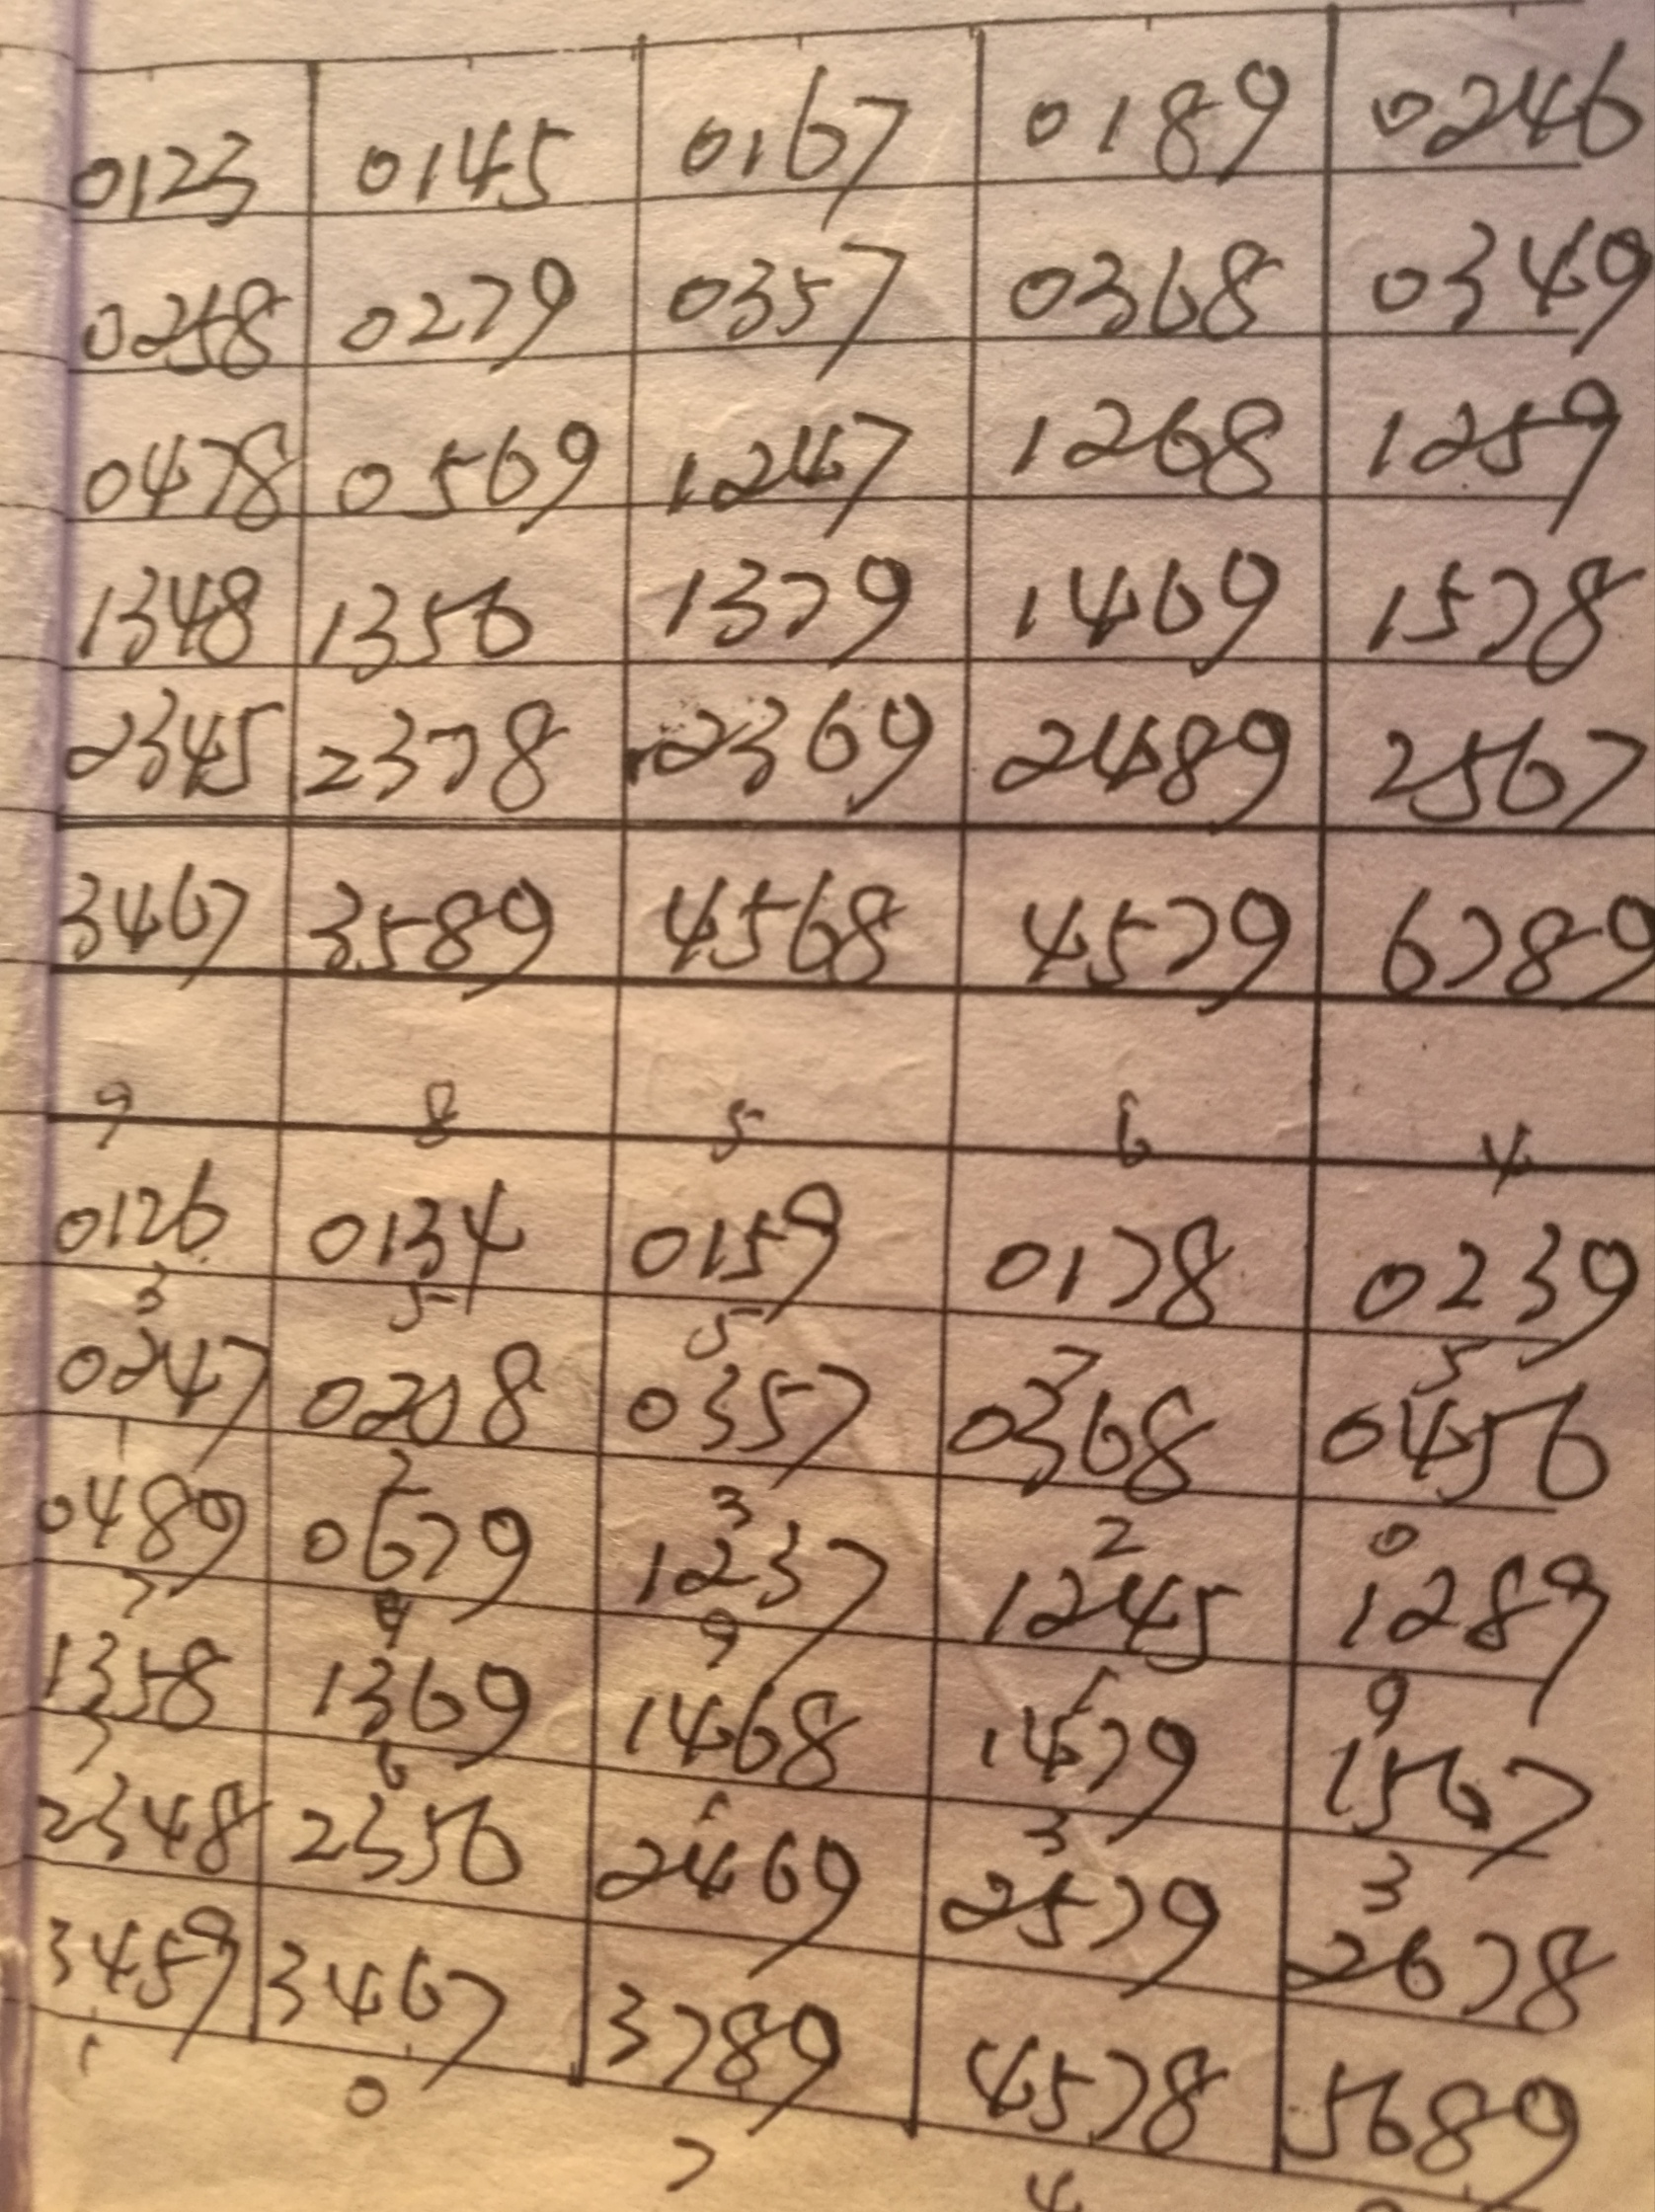 0123 0145 0167 0189 0246
0258 0279 0357 0368 0349
0478 0569 1247 1268 1259
1348 1356 1379 1469 1578
2345 2378 2369 2489 2567
3467 3589 4568 4579 6789
9 8 5 6 4
0126 0134 0159 0178 0239
3 5 5 7 5
0247 0258 0357 0368 0456
1 2 3 2 0
0489 0679 1237 1245 1289
7 9 9 1 9
1358 1369 1468 1479 1567
7 6 1 3 3
2348 2356 2469 2579 2678
3459 3467 3789 4578 5689
1 0 7 4